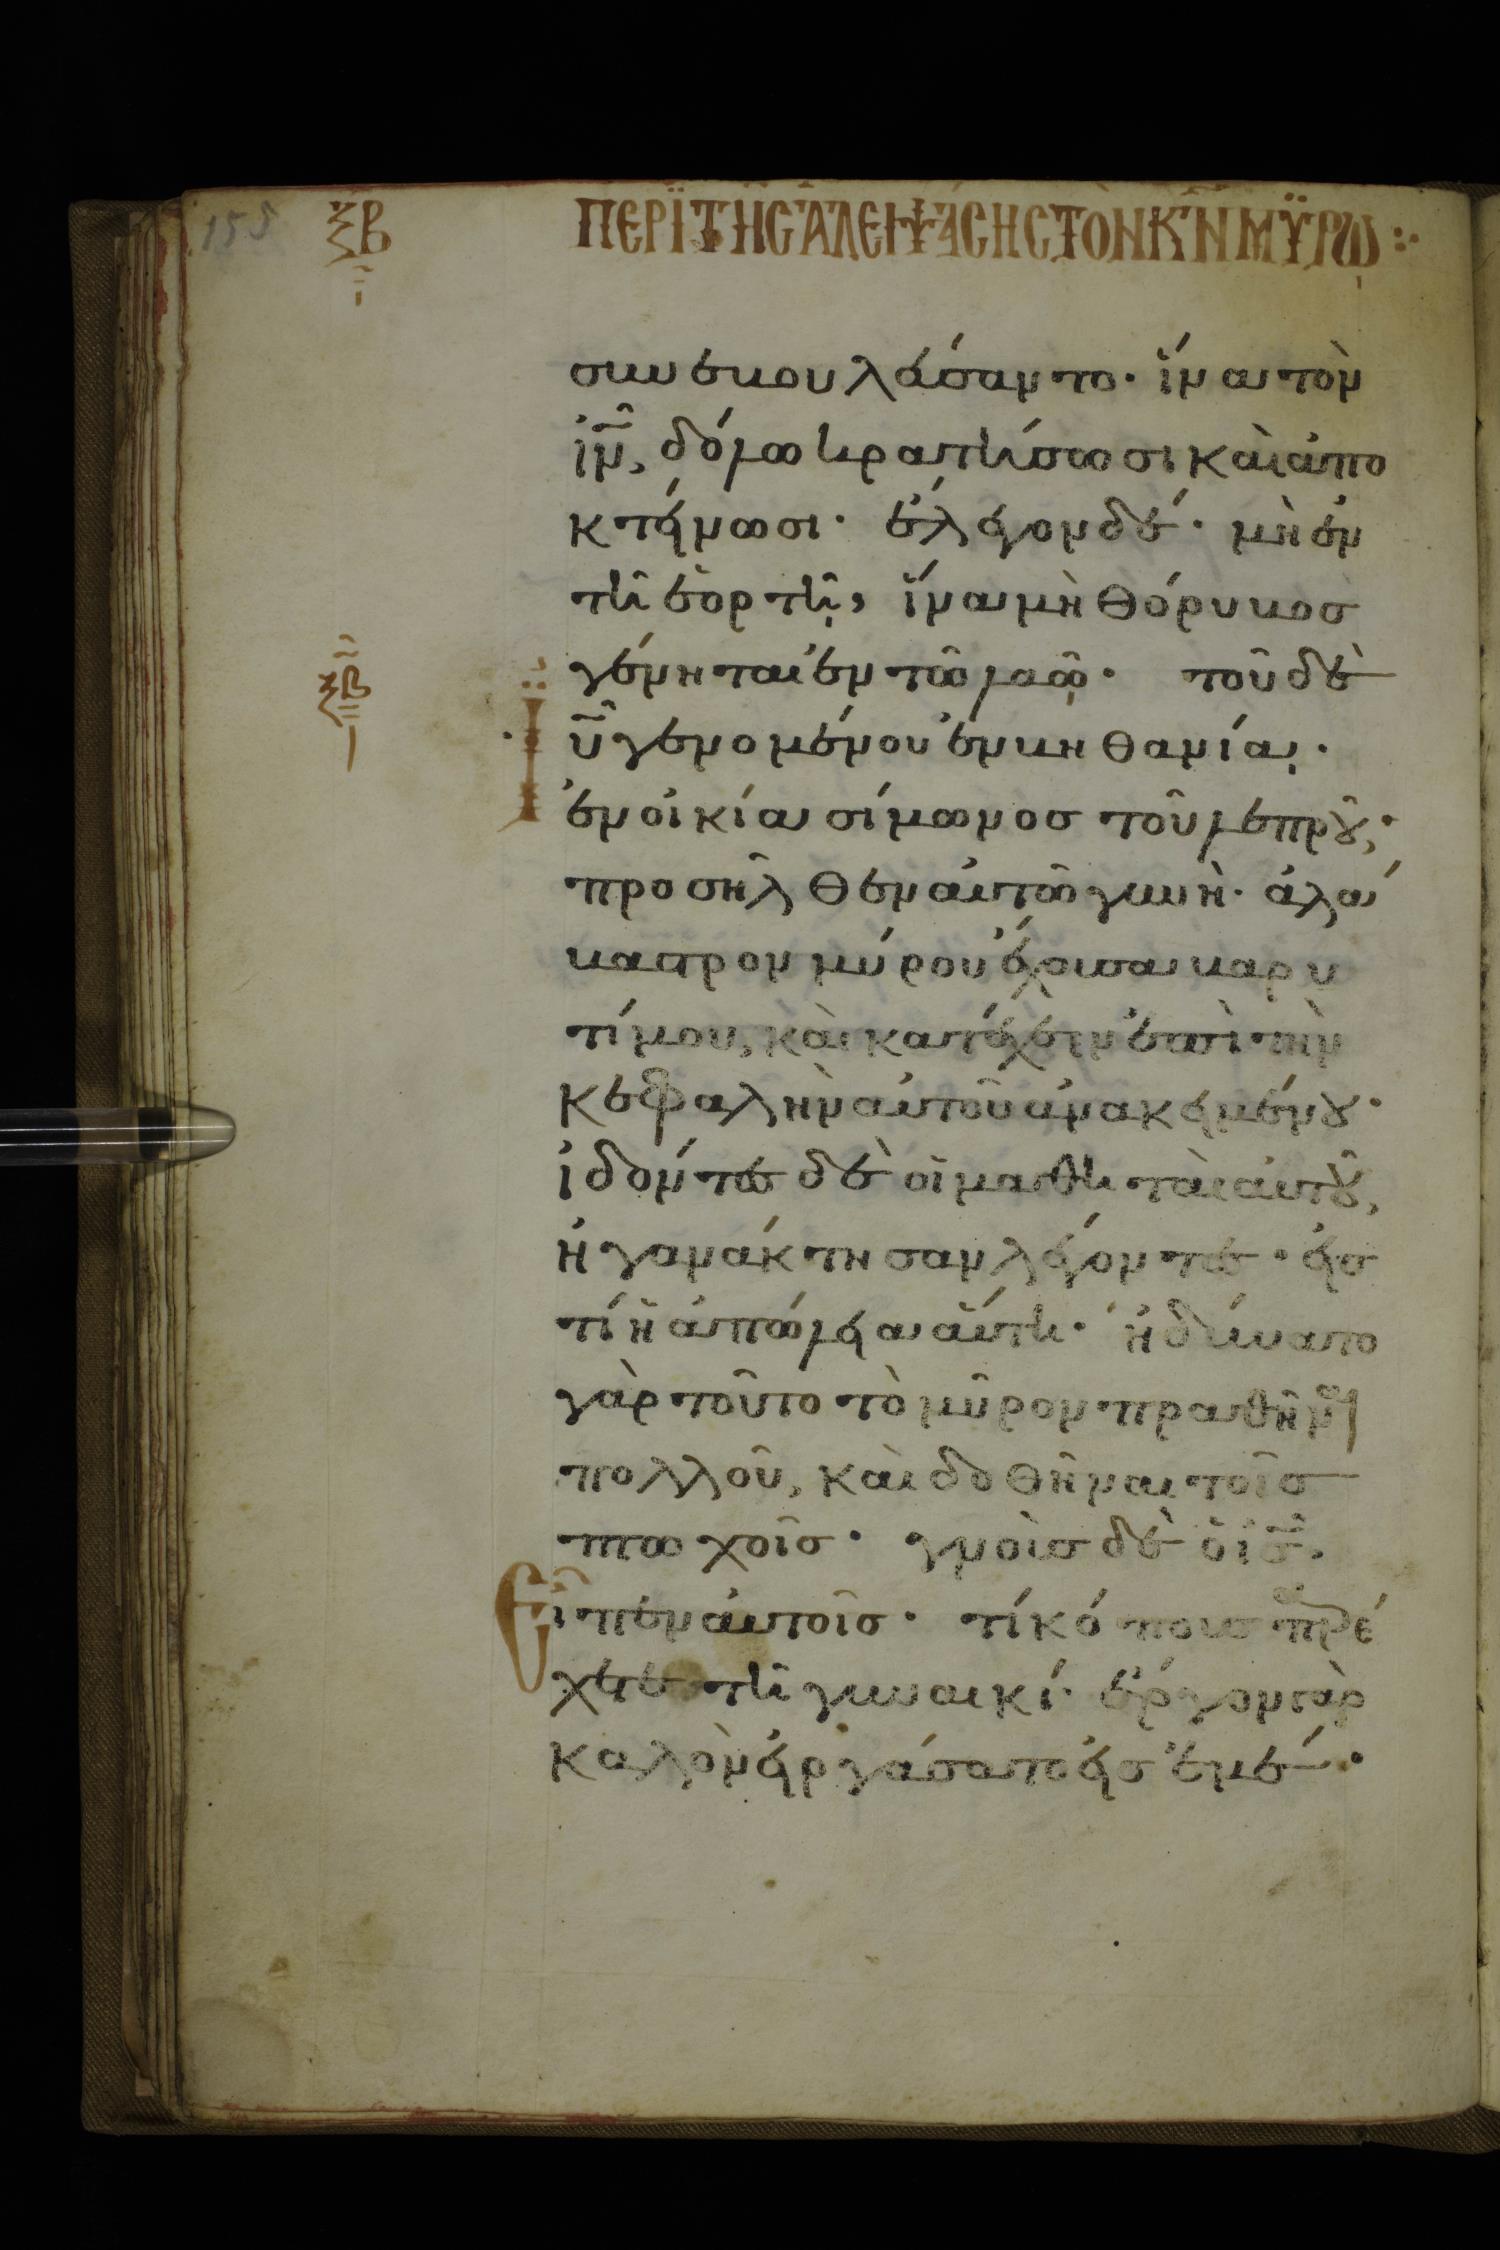 ξΒ ΠΕΡΪ ΤΗΣ ἈΛΕΙΨΆΣΗΣ ΤΟΝ Κ͞Ν ΜΫΡΩ :·
συνεβουλεύσαντο· ἵνα τὸν
ἰ͞ν, δόλω κρατήσωσι καὶ ἀπο
κτείνωσι· ἔλεγον δέ· μὴ ἐν
τῆ ἑορτῆ, ἵνα μὴ θόρυβοσ
γένηται ἐν τῶ λαῶ· τοῦ δὲ
ι͞υ γενομένου ἐν βηθανία·
ἐν οἰκία σίμωνοσ τοῦ λεπροῦ,·
προσῆλθεν αὐτῶ γυνὴ· ἀλά
βαστρον μύρου ἔχουσα βαρυ
τίμου, καὶ κατέχεεν ἐπὶ τὴν
κεφαλὴν αὐτοῦ ἀνακειμένου·
ἰδόντες δὲ οἱ μαθηταὶ αὐτοῦ,
ἠγανάκτησαν λέγοντες· εἰσ
τί ἡ ἀπώλεια αὕτη· ἠδύνατο
γὰρ τοῦτο τὸ μῦρον πραθῆναι
πολλοῦ, καὶ δοθῆναι τοῖσ
πτωχοῖσ· γνοὺσ δὲ ὁ ἰ͞σ.
Εἶπεν αὐτοῖσ· τί κόπουσ παρέ
χετε τῆ γυναικί· ἔργον γὰρ
καλὸν εἰργάσατο εἰσ ἐμέ·